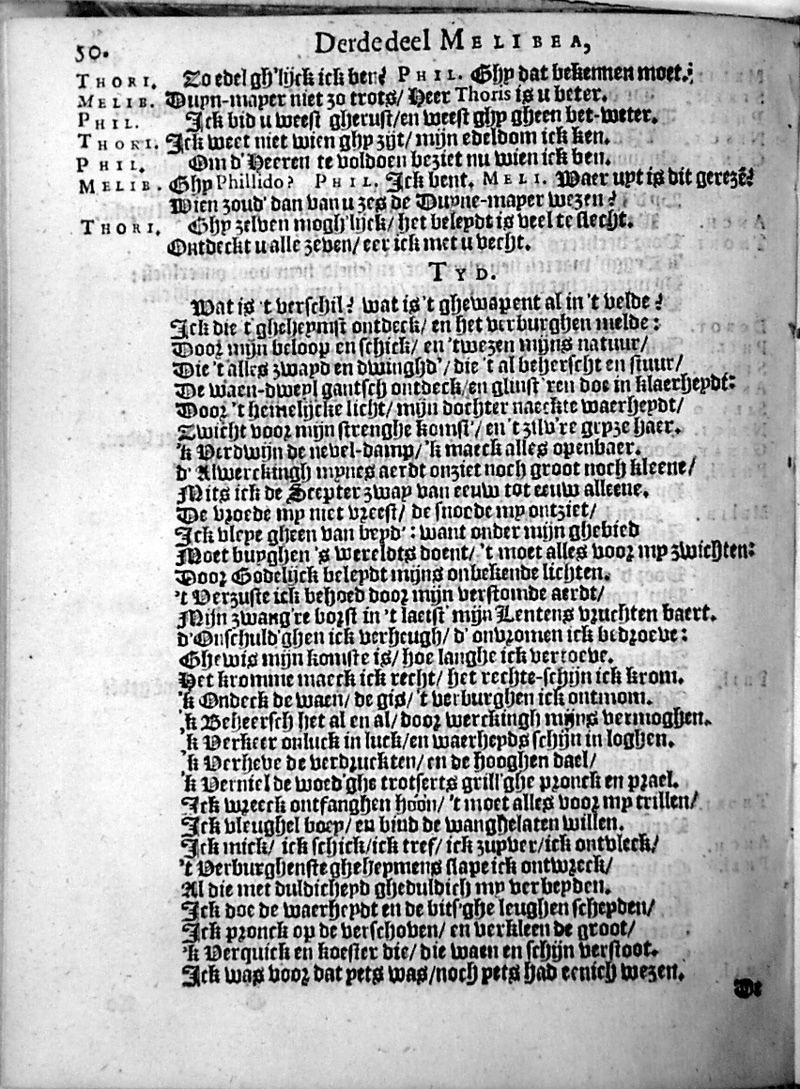 50. Derde deel MELIBEA,
THORI. Zo edel gh'lijck ick ben? PHIL. Ghy dat bekennen moet.
MELIB. Duyn-mayer niet zo trots/ Heer Thoris is u beter.
PHIL. Ick bid u weest gherust/en weest ghy gheen bet-weter.
THORI. Ick weet niet wien ghy zijt/ mijn edeldom ick ken.
PHIL. Om d'Heeren te voldoen beziet nu wien ick ben.
MELIB. Ghy Phillido? PHIL. Ick bent. MELI. Waer uyt is dit gerezē?
Wien zoud' dan van u zes de Duyne-mayer wezen?
THORI. Ghy zelven mogh'lijck/ het beleydt is veel te slecht.
Ontdeckt u alle zeven/ eer ick met u vecht.
TYD.
Wat is 't verschil? wat is 't ghewapent al in 't velde?
Ick die t'gheheymst ontdeck/ en het verburghen melde:
Door mijn beloop en schick/ en 'twezen mijns natuur/
Die 't alles zwayd en dwinghd'/ die 't al beherscht en stuur/
De waen-dweyl gantsch ontdeck/en glinst'ren doe in klaerheydt:
Door 't hemelijcke licht/ mijn dochter naeckte waerheydt/
Zwicht voor mijn strenghe komst'/ en 't zilv're gryze haer.
'k Verdwijn de nevel-damp/ 'k maeck alles openbaer.
d' Alwerckingh mynes aerdt onziet noch groot noch kleene/
Mits ick de Scepter zway van eeuw tot eeuw alleene.
De vroede my niet vreest/ de snoode my ontziet/
Ick vleye gheen van beyd': want onder mijn ghebied
Moet buyghen 's wereldts doent/ 't moet alles voor my zwichten:
Door Godelijck beleydt mijns onbekende lichten.
't Verzuste ick behoed door mijn verstomde aerdt/
Mijn zwang're borst in 't laetst' mijn Lentens vruchten baert.
d'Onschuld'ghen ick verheugh/ d' onvromen ick bedroeve:
Ghewis mijn komste is/ hoe langhe ick vertoeve.
Het kromme maeck ick recht/ het rechte-schijn ick krom.
'k Ondeck de waen/ de gis/ 't verburghen ick ontmom.
'k Beheersch het al en al/ door werckingh mijns vermoghen.
'k Verkeer onluck in luck/en waerheyds schijn in loghen.
'k Verheve de verdruckten/ en de hooghen dael/
'k Verniel de woed'ghe trotserts grill'ghe pronck en prael.
Ick wreeck ontfanghen hoon/ 't moet alles voor my trillen/
Ick vleughel boey/ en bind de wanghelaten willen.
Ick mick/ ick schick/ick tref/ ick zuyver/ick ontvleck/
't Verburghenste gheheymens slape ick ontwreck/
Al die met duldicheyd gheduldich my verbeyden.
Ick doe de waerheydt en de bits'ghe leughen scheyden/
Ick pronck op de verschoven/ en verkleen de groot/
'k Verquick en koester die/ die waen en schijn verstoot.
Ick was voor dat yets was/noch yets had eenich wezen.
De